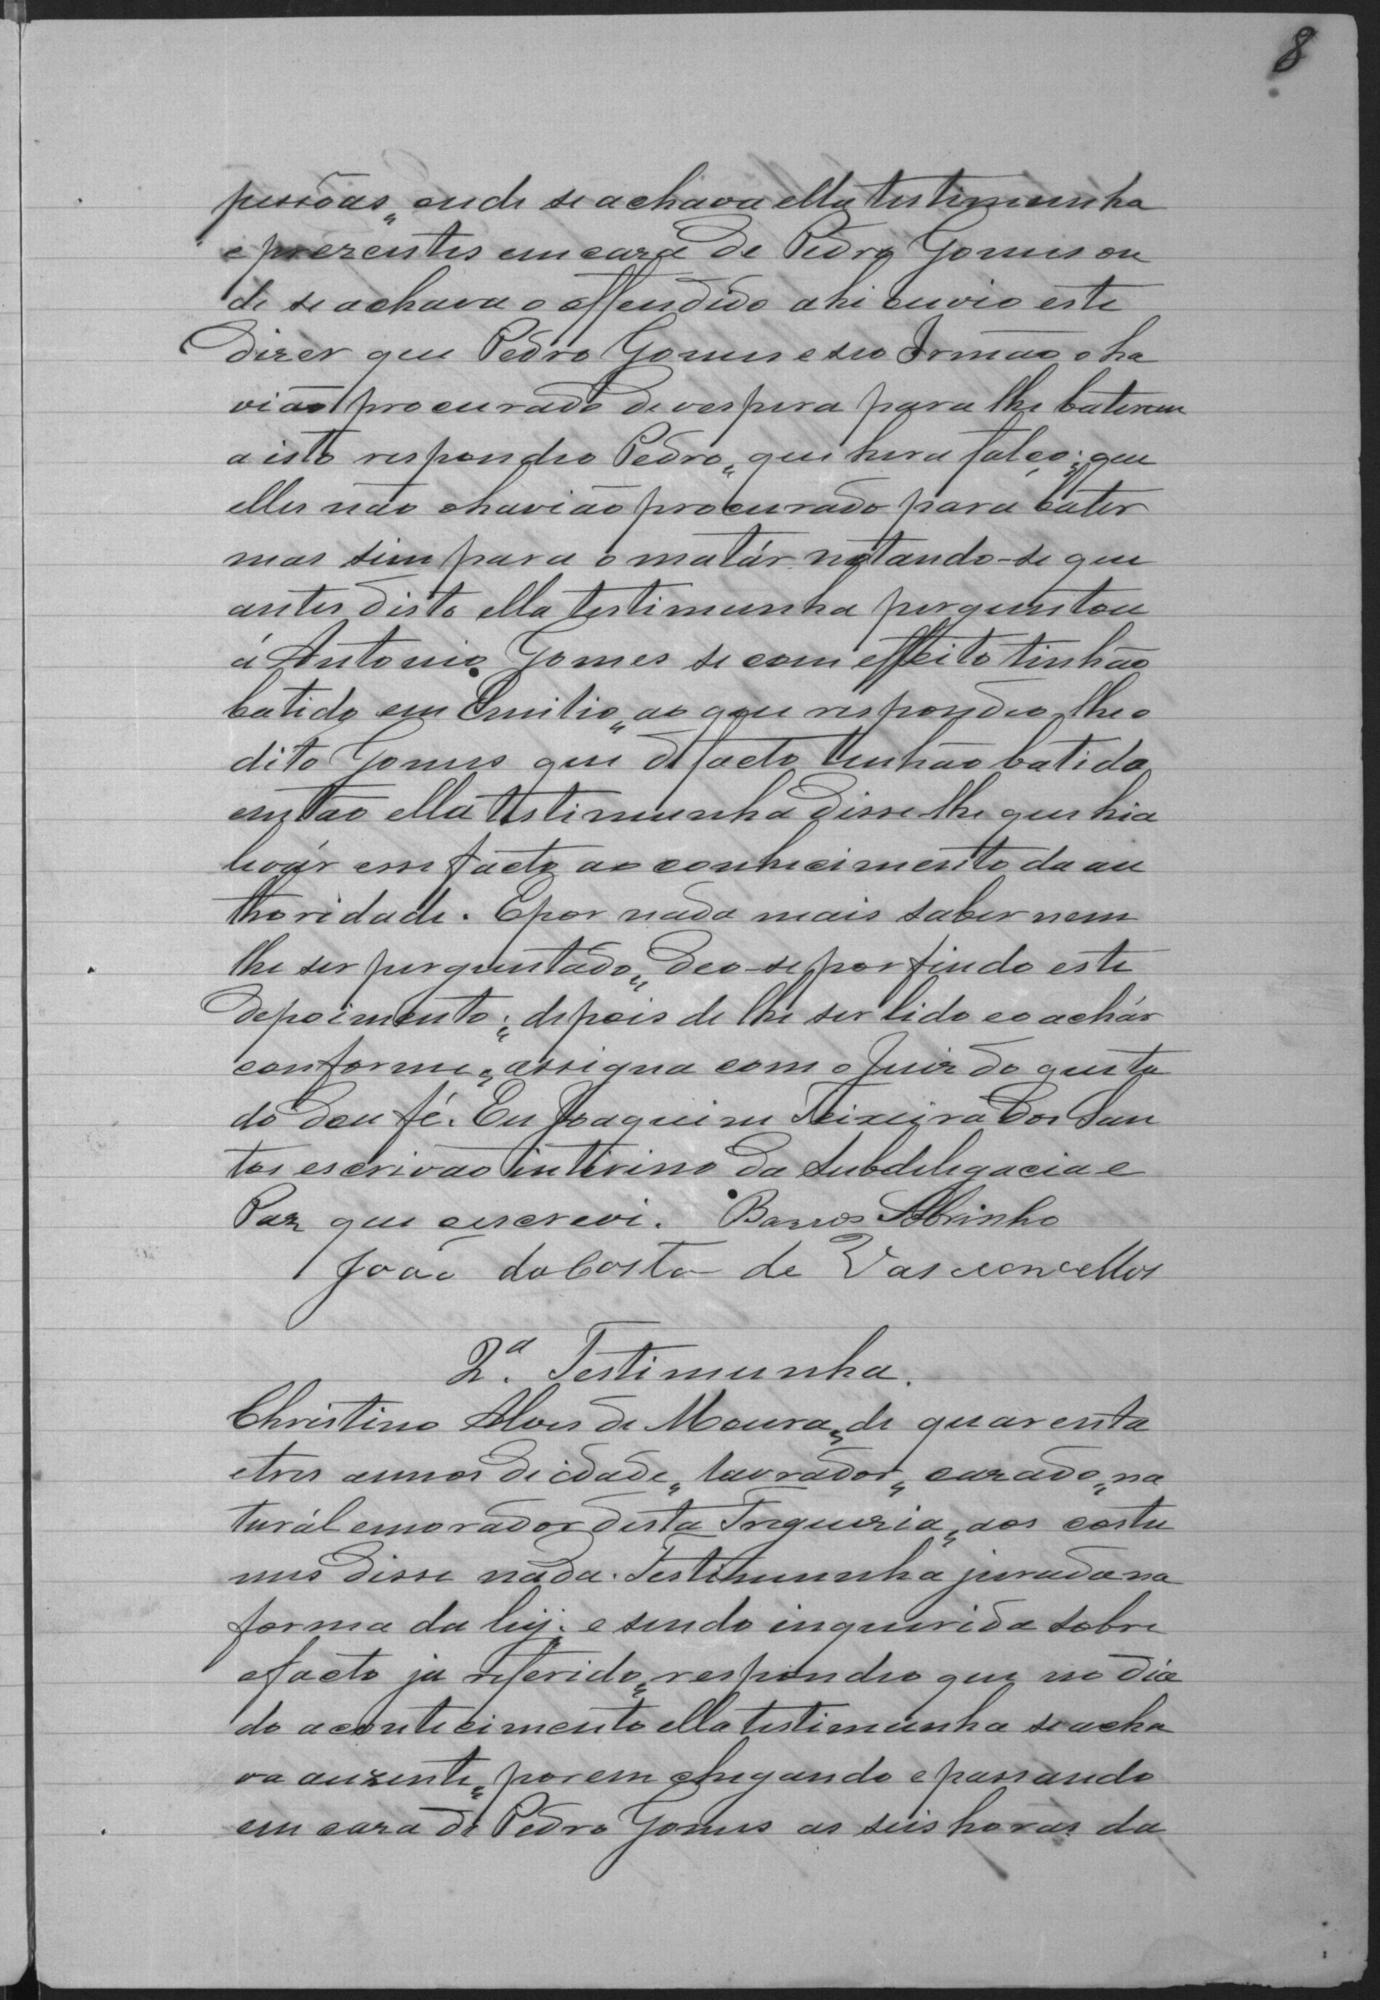 8
pessôas, onde se achava ella testimunha
e prezentes em caza de Pedro Gomes on
de se achava o offendido ahi ouvio este
dizer que Pedro Gomes e seo Irmão o ha
vião procurado de vespera para lhe baterem
a isto respondeo Pedro, que hera falço; que
elles não o havião procurado para bater
mas sim para o matár notando-se que
antes disto ella testimunha perguntou
á Antonio Gomes se com effeito tinhão
batido em Emilio, ao que respondeo lhe o
dito Gomes que de facto tinhão batido
então ella testimunha disse lhe que hia
levár esse facto ao conhecimento da au
thoridade. E por nada mais saber nem
lhe ser perguntado, deo-se por findo este
depoimento; depois de lhe ser lido e o achár
conforme, assigna com o Juiz do que tu
do dou fé. Eu Joaquim Teixeira dos San
tos escrivão interino da Subdelegacia e
Paz que escrevi. Barros Sobrinho
João da Costa de Vasconcellos
2ª. Testimunha.
Christino Alves de Moura, de quarenta
e tres annos de idade, lavrador, cazado, na
turál e morador desta Freguezia, aos costu
mes disse nada. Testimunha jurada na
forma da ley; e sendo inquerida sobre
o facto ja referido, respondeo que no dia
do acontecimento ella testimunha se acha
va auzente, porem chegando e passando
em caza de Pedro Gomes as seis horas da